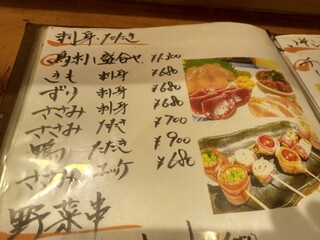 刺身・たたき
鳥刺し盛合せ ¥1,300
きも 刺身 ¥680
ずり 刺身 ¥680
ささみ 刺身 ¥680
ささみ たたき ¥700
鴨 たたき ¥900
ささみ ユッケ ¥680
野菜串